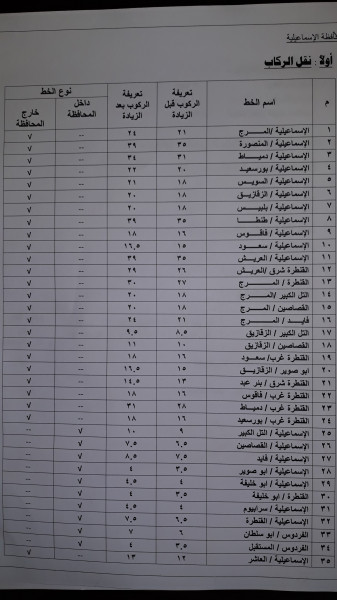 ظة الإسماعيلية
أولاً : نقل الركاب
م اسم الخط تعريفة الركوب قبل الزيادة تعريفة الركوب بعد الزيادة نوع الخط
داخل المحافظة خارج المحافظة
١ الإسماعيلية / المــرج ٢١ ٢٤ -- √
٢ الإسماعيلية / المنصورة ٣٥ ٣٩ -- √
٣ الإسماعيلية / دميــاط ٣١ ٣٤ -- √
٤ الإسماعيلية / بورسعيد ٢٠ ٢٢ -- √
٥ الإسماعيلية / السويس ١٨ ٢١ -- √
٦ الإسماعيلية / الزقازيق ١٨ ٢٠ -- √
٧ الإسماعيلية / بلبيس ١٨ ٢٠ -- √
٨ الإسماعيلية / طنطــا ٣٥ ٣٩ -- √
٩ الإسماعيلية / فاقــوس ١٦ ١٨ -- √
١٠ الإسماعيلية / سعــود ١٥ ١٦,٥ -- √
١١ الإسماعيلية / العريش ٣٥ ٣٩ -- √
١٢ القنطرة شرق /العريش ٢٦ ٢٩ -- √
١٣ القنطرة / المــرج ٢٧ ٣٠ -- √
١٤ التل الكبير /المرج ١٨ ٢٠ -- √
١٥ القصاصين / المرج ١٨ ٢٠ -- √
١٦ فايــد / المــرج ٢١ ٢٤ -- √
١٧ التل الكبير / الزقازيق ٨,٥ ٩,٥ -- √
١٨ القصاصين / الزقازيق ١٠ ١١ -- √
١٩ القنطرة غرب/ سعــود ١٦ ١٨ -- √
٢٠ ابو صوير / الزقازيــق ١٥ ١٦,٥ -- √
٢١ القنطرة شرق / بئر عبد ١٣ ١٤,٥ -- √
٢٢ القنطرة غرب / فاقوس ١٦ ١٨ -- √
٢٣ القنطرة غرب / دمياط ٢٨ ٣١ -- √
٢٤ القنطرة غرب / بورسعيد ١٦ ١٨ -- √
٢٥ الإسماعيلية / التل الكبير ٩ ١٠ √ --
٢٦ الإسماعيلية / القصاصين ٦,٥ ٧,٥ √ --
٢٧ الإسماعيلية / فايد ٧,٥ ٨,٥ √ --
٢٨ الإسماعيلية / ابو صوير ٣,٥ ٤ √ --
٢٩ الإسماعيلية / أبو خليفة ٤ ٤,٥ √ --
٣٠ القنطرة / أبو خليفة ٣,٥ ٤ √ --
٣١ الإسماعيلية / سرابيوم ٤ ٤,٥ √ --
٣٢ الإسماعيلية / القنطرة ٦,٥ ٧,٥ √ --
٣٣ الفردوس / أبو سلطان ٦ ٧ √ --
٣٤ الفردوس / المستقبل ٣,٥ ٤ √ --
٣٥ الإسماعيلية / العاشر ١٢ ١٣ -- √